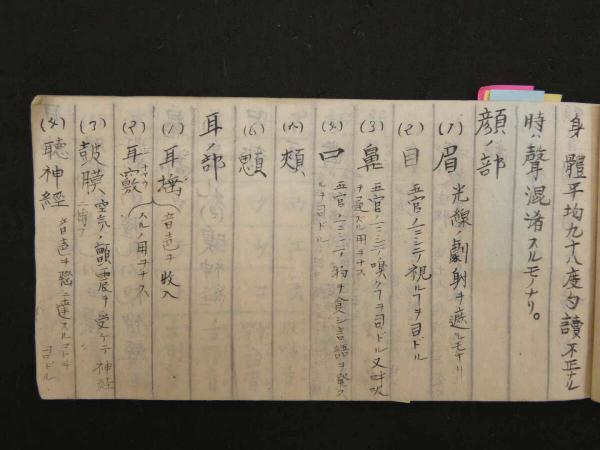 身體平均九十八度句讀不正ナル
時ハ聲混淆スルモノナリ。
顔ノ部
(1) 眉 光線ノ劇射ヲ遮ルモノナリ
(2) 目 五官ノ一ニシテ視ルヿヲ司ドル
(3) 鼻 五官ノ一ニシテ嗅クヿヲ司ドル又呼吸
ヲ通スル用ヲナス
(4) 口 五官ノ一ニシテ物ヲ食シ言語ヲ發ス
ルヲ司ドル
(5) 頰
(6) 顋
耳ノ部
(1) 耳 音色ヲ收入
(2) 耳 スルノ用ヲナス
(3) 鼓膜 空気ノ顫震ヲ受ケテ神経
ニ傳フ
(4) 聴神経 音色ヲ ニ達スルコトヲ
司ドル